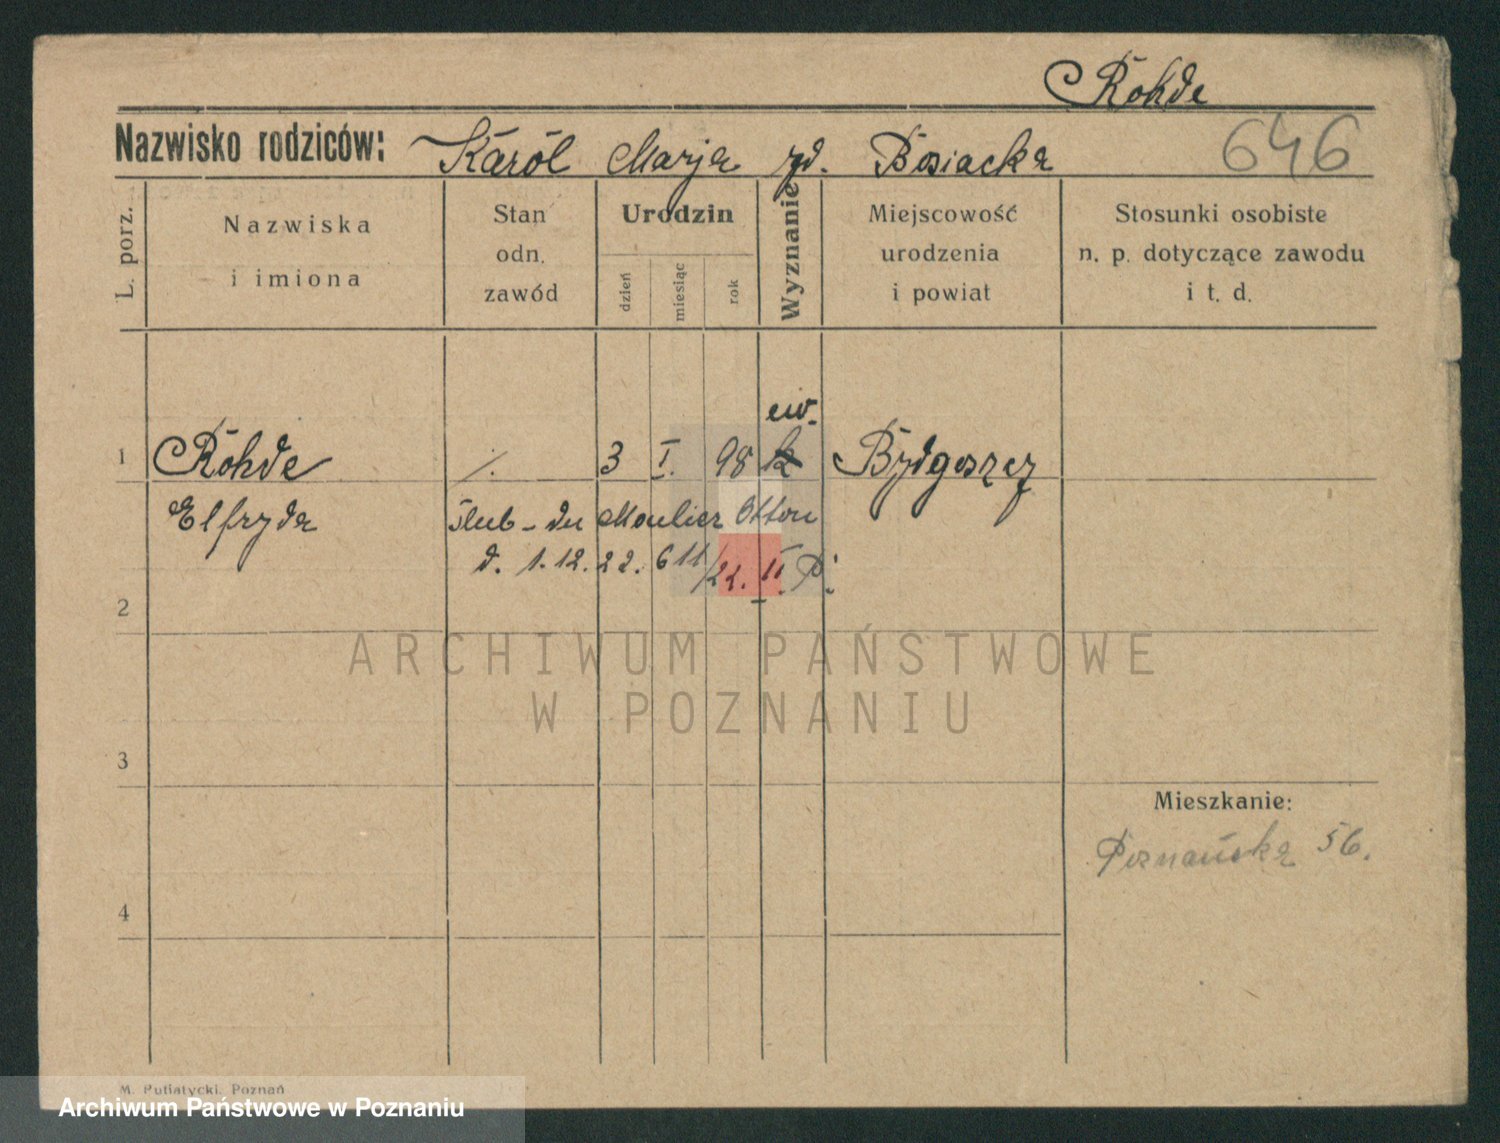 Rohde
646
Nazwisko rodziców: Karol Marja zd. Bosiacka
L. porz.
Nazwiska
i imiona
Stan
odn.
zawód
Urodzin
dzień
miesiąc
rok
Wyznanie
Miejscowość
urodzenia
i powiat
Stosunki osobiste
n. p. dotyczące zawodu
i t. d.
ew.
1 Rohde ./. 3 I. 98 k Bydgoszcz
Elfryda ślub - Otton
d. 1.12.22. 611/22. II. P.
2
ARCHIWUM PAŃSTWOWE
W POZNANIU
3
Mieszkanie:
Poznańska 56.
4
M. Putiatycki, Poznań
Archiwum Państwowe w Poznaniu